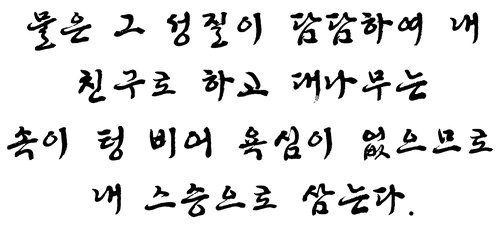 물은 그 성질이 담담하여 내
친구로 하고 대나무는
속이 텅 비어 욕심이 없으므로
내 스승으로 삼는다.